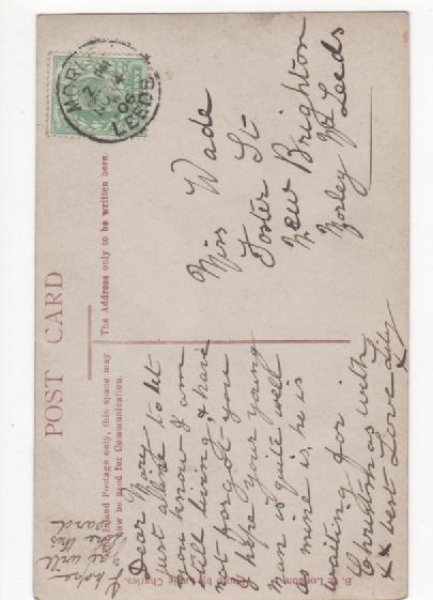 POST CARD
For Inland Postage only, this space may
now be used for Communication.
The Address only to be written here.
MORLEY
LEEDS
2 PM
NO
05
Miss Wade
Foster St
New Brighton
Morley Nr Leeds
Dear Mary
just a line to let
you know I am
still living & have
not forgot you
I hope your young
man is quite well
as mine is, he is
waiting for
Christmas with
xx best Love Lily x
I hope
you will
like this
card
London